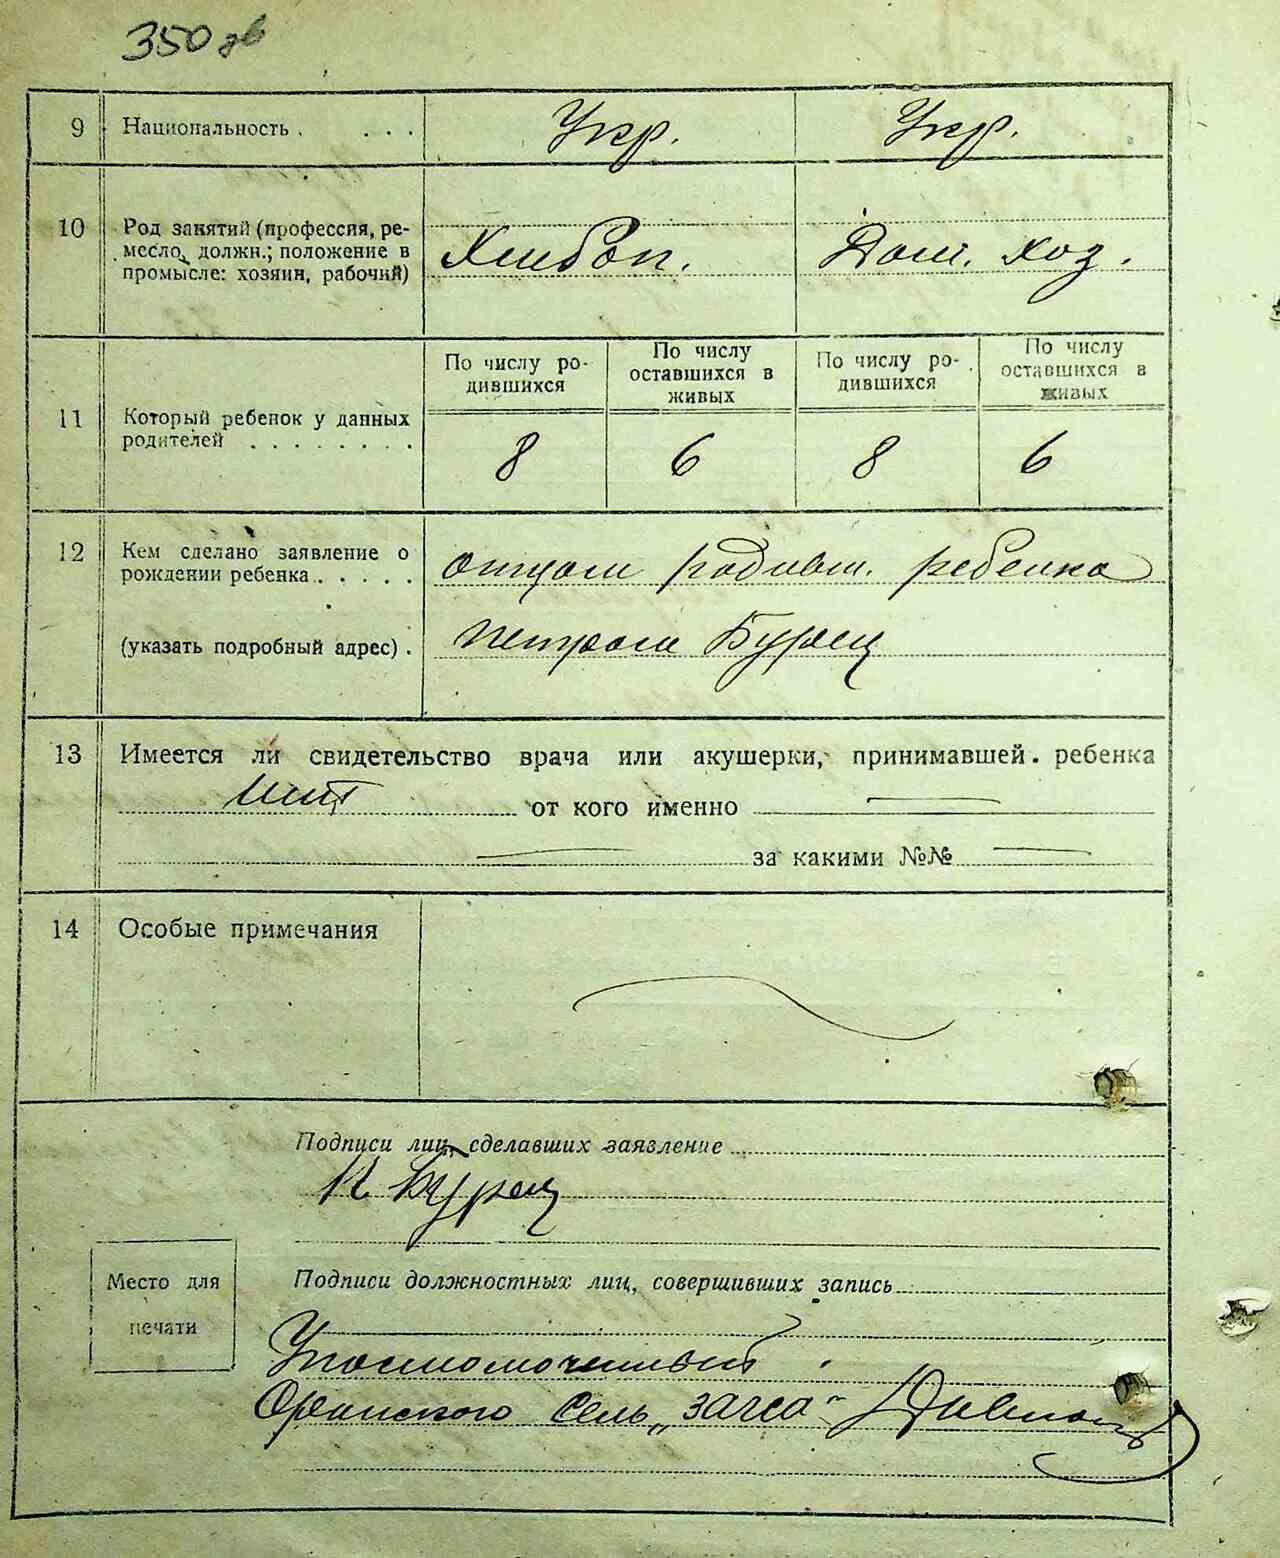 350 зв
9 Национальность . . . . Укр. Укр.
10 Род занятий (профессия, ре-
месло, должн.; положение в
промысле: хозяин, рабочий) Хлибоп. Дом. хоз.
11 Который ребенок у данных
родителей . . . . . . . .
По числу ро-
дившихся
По числу
оставшихся в
живых
По числу ро-
дившихся
По числу
оставшихся в
живых
8 6 8 6
12 Кем сделано заявление о
рождении ребенка . . . . . отцом родивш. ребенка
(указать подробный адрес) . Петром Бурец
13 Имеется ли свидетельство врача или акушерки, принимавшей ребенка
нит от кого именно —
— за какими №№ —
14 Особые примечания
Подписи лиц, сделавших заявление
П Бурец
Место для
печати
Подписи должностных лиц, совершивших запись
Уполномоченный
сель „загса“